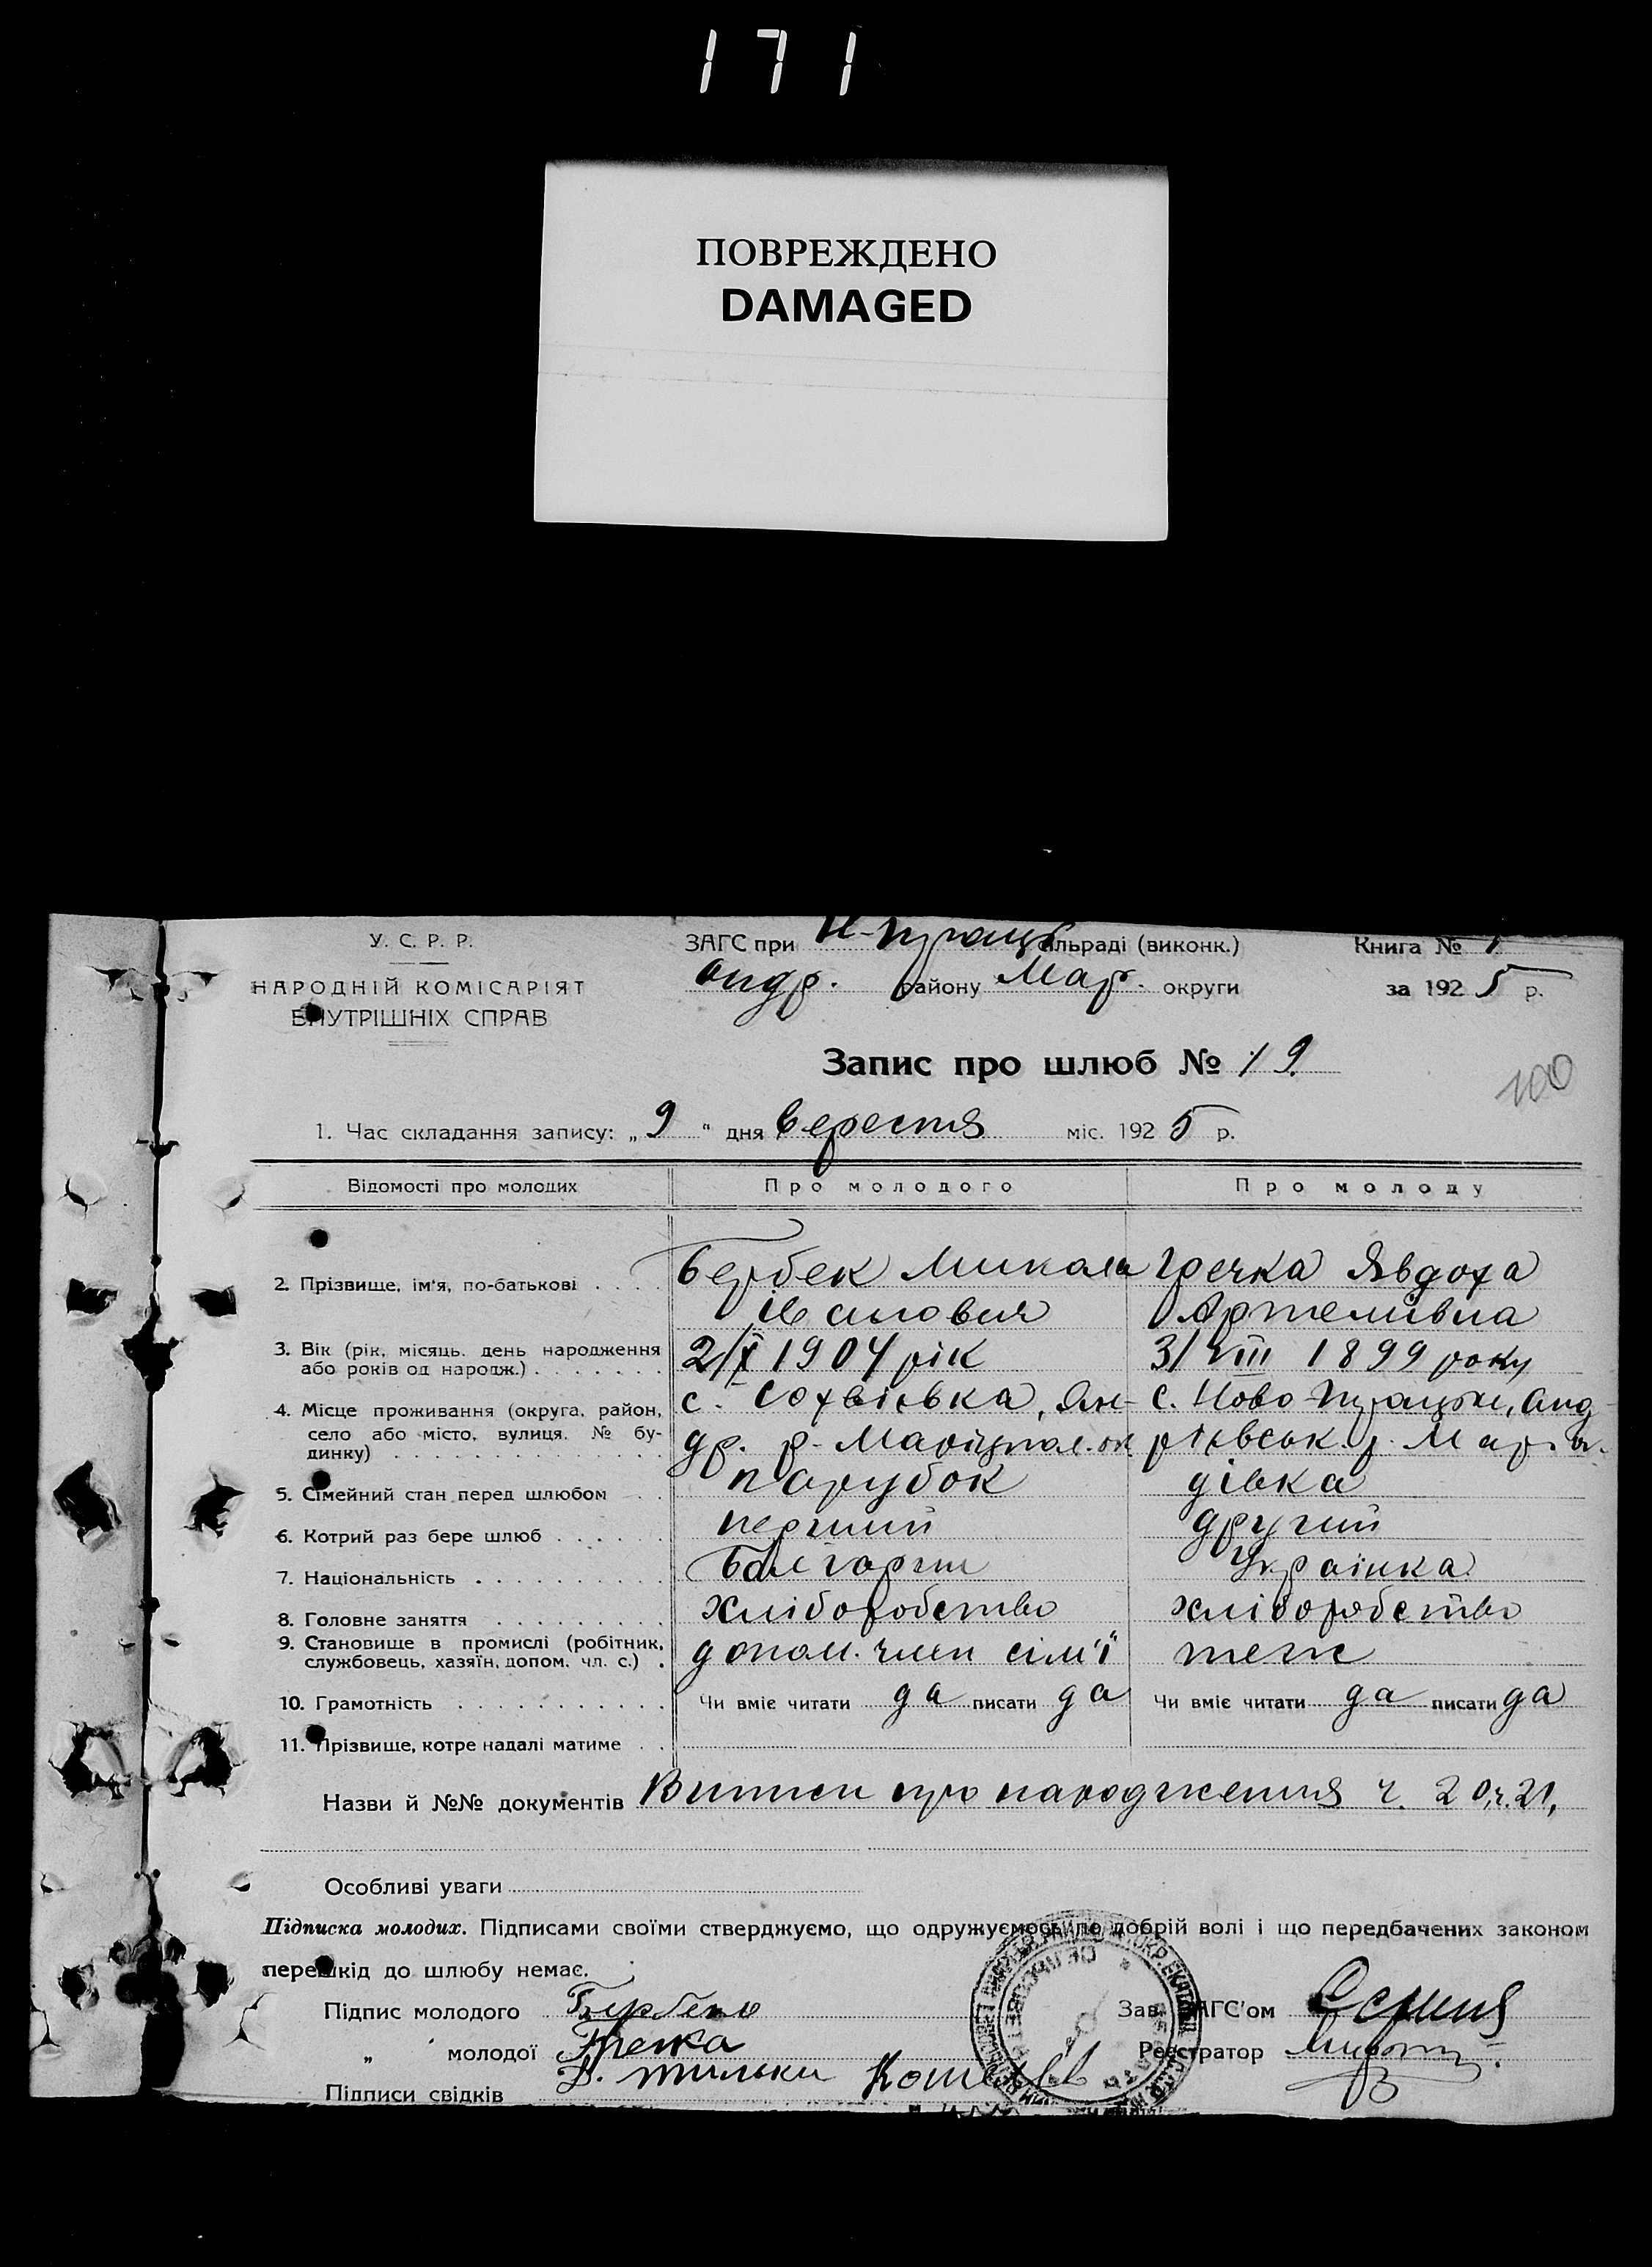 171
ПОВРЕЖДЕНО
DAMAGED
У. С. Р. Р.
НАРОДНІЙ КОМІСАРІЯТ
ВНУТРІШНІХ СПРАВ
ЗАГС при сільраді (виконк.)
Андр. району Мар. округи
Книга № 1
за 1925 р.
Запис про шлюб № 19
100
1. Час складання запису: „9“ дня вересня міс. 1925 р.
Відомості про молодих Про молодого Про молоду
2. Прізвище, ім'я, по-батькові Бербек Микола Гречка Явдоха
Артемівна
3. Вік (рік, місяць, день народження або років од народж.) 2/X 1904 рік 3/VIII 1899 року
4. Місце проживання (округа, район, село або місто, вулиця, № будинку) с. Ян- с. Ново- Анд-
др. р. Маріупол. ок. ріївськ. р. Мар. ок.
5. Сімейний стан перед шлюбом парубок дівка
6. Котрий раз бере шлюб перший другий
7. Національність Болгарин Українка
8. Головне заняття хліборобство хліборобство
9. Становище в промислі (робітник, службовець, хазяїн, допом. чл. с.) допом. член сім'ї теж
10. Грамотність Чи вміє читати да писати да Чи вміє читати да писати да
11. Прізвище, котре надалі матиме
Назви й №№ документів Витяги про народження ч. 20, ч. 21,
Особливі уваги
Підписка молодих. Підписами своїми стверджуємо, що одружуємось по добрій волі і що передбачених законом
перешкід до шлюбу немає.
Підпис молодого Бербека Зав. ЗАГС'ом
„ молодої Гречка Реєстратор
Підписи свідків